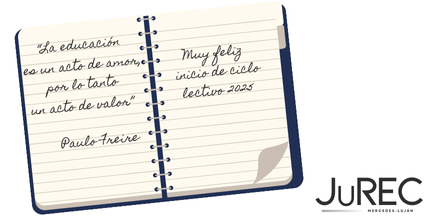 “La educación
es un acto de amor,
por lo tanto
un acto de valor”
Paulo Freire
Muy feliz
inicio de ciclo
lectivo 2025
JuREC
MERCEDES-LUJÁN